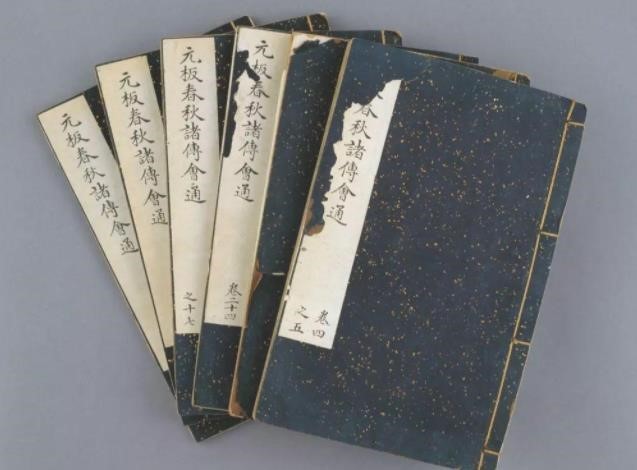 春秋諸傳會通
卷四
之五
元板春秋諸傳會通
卷二十四
元板春秋諸傳會通
之十七
元板春秋諸傳會通
元板春秋諸傳會通